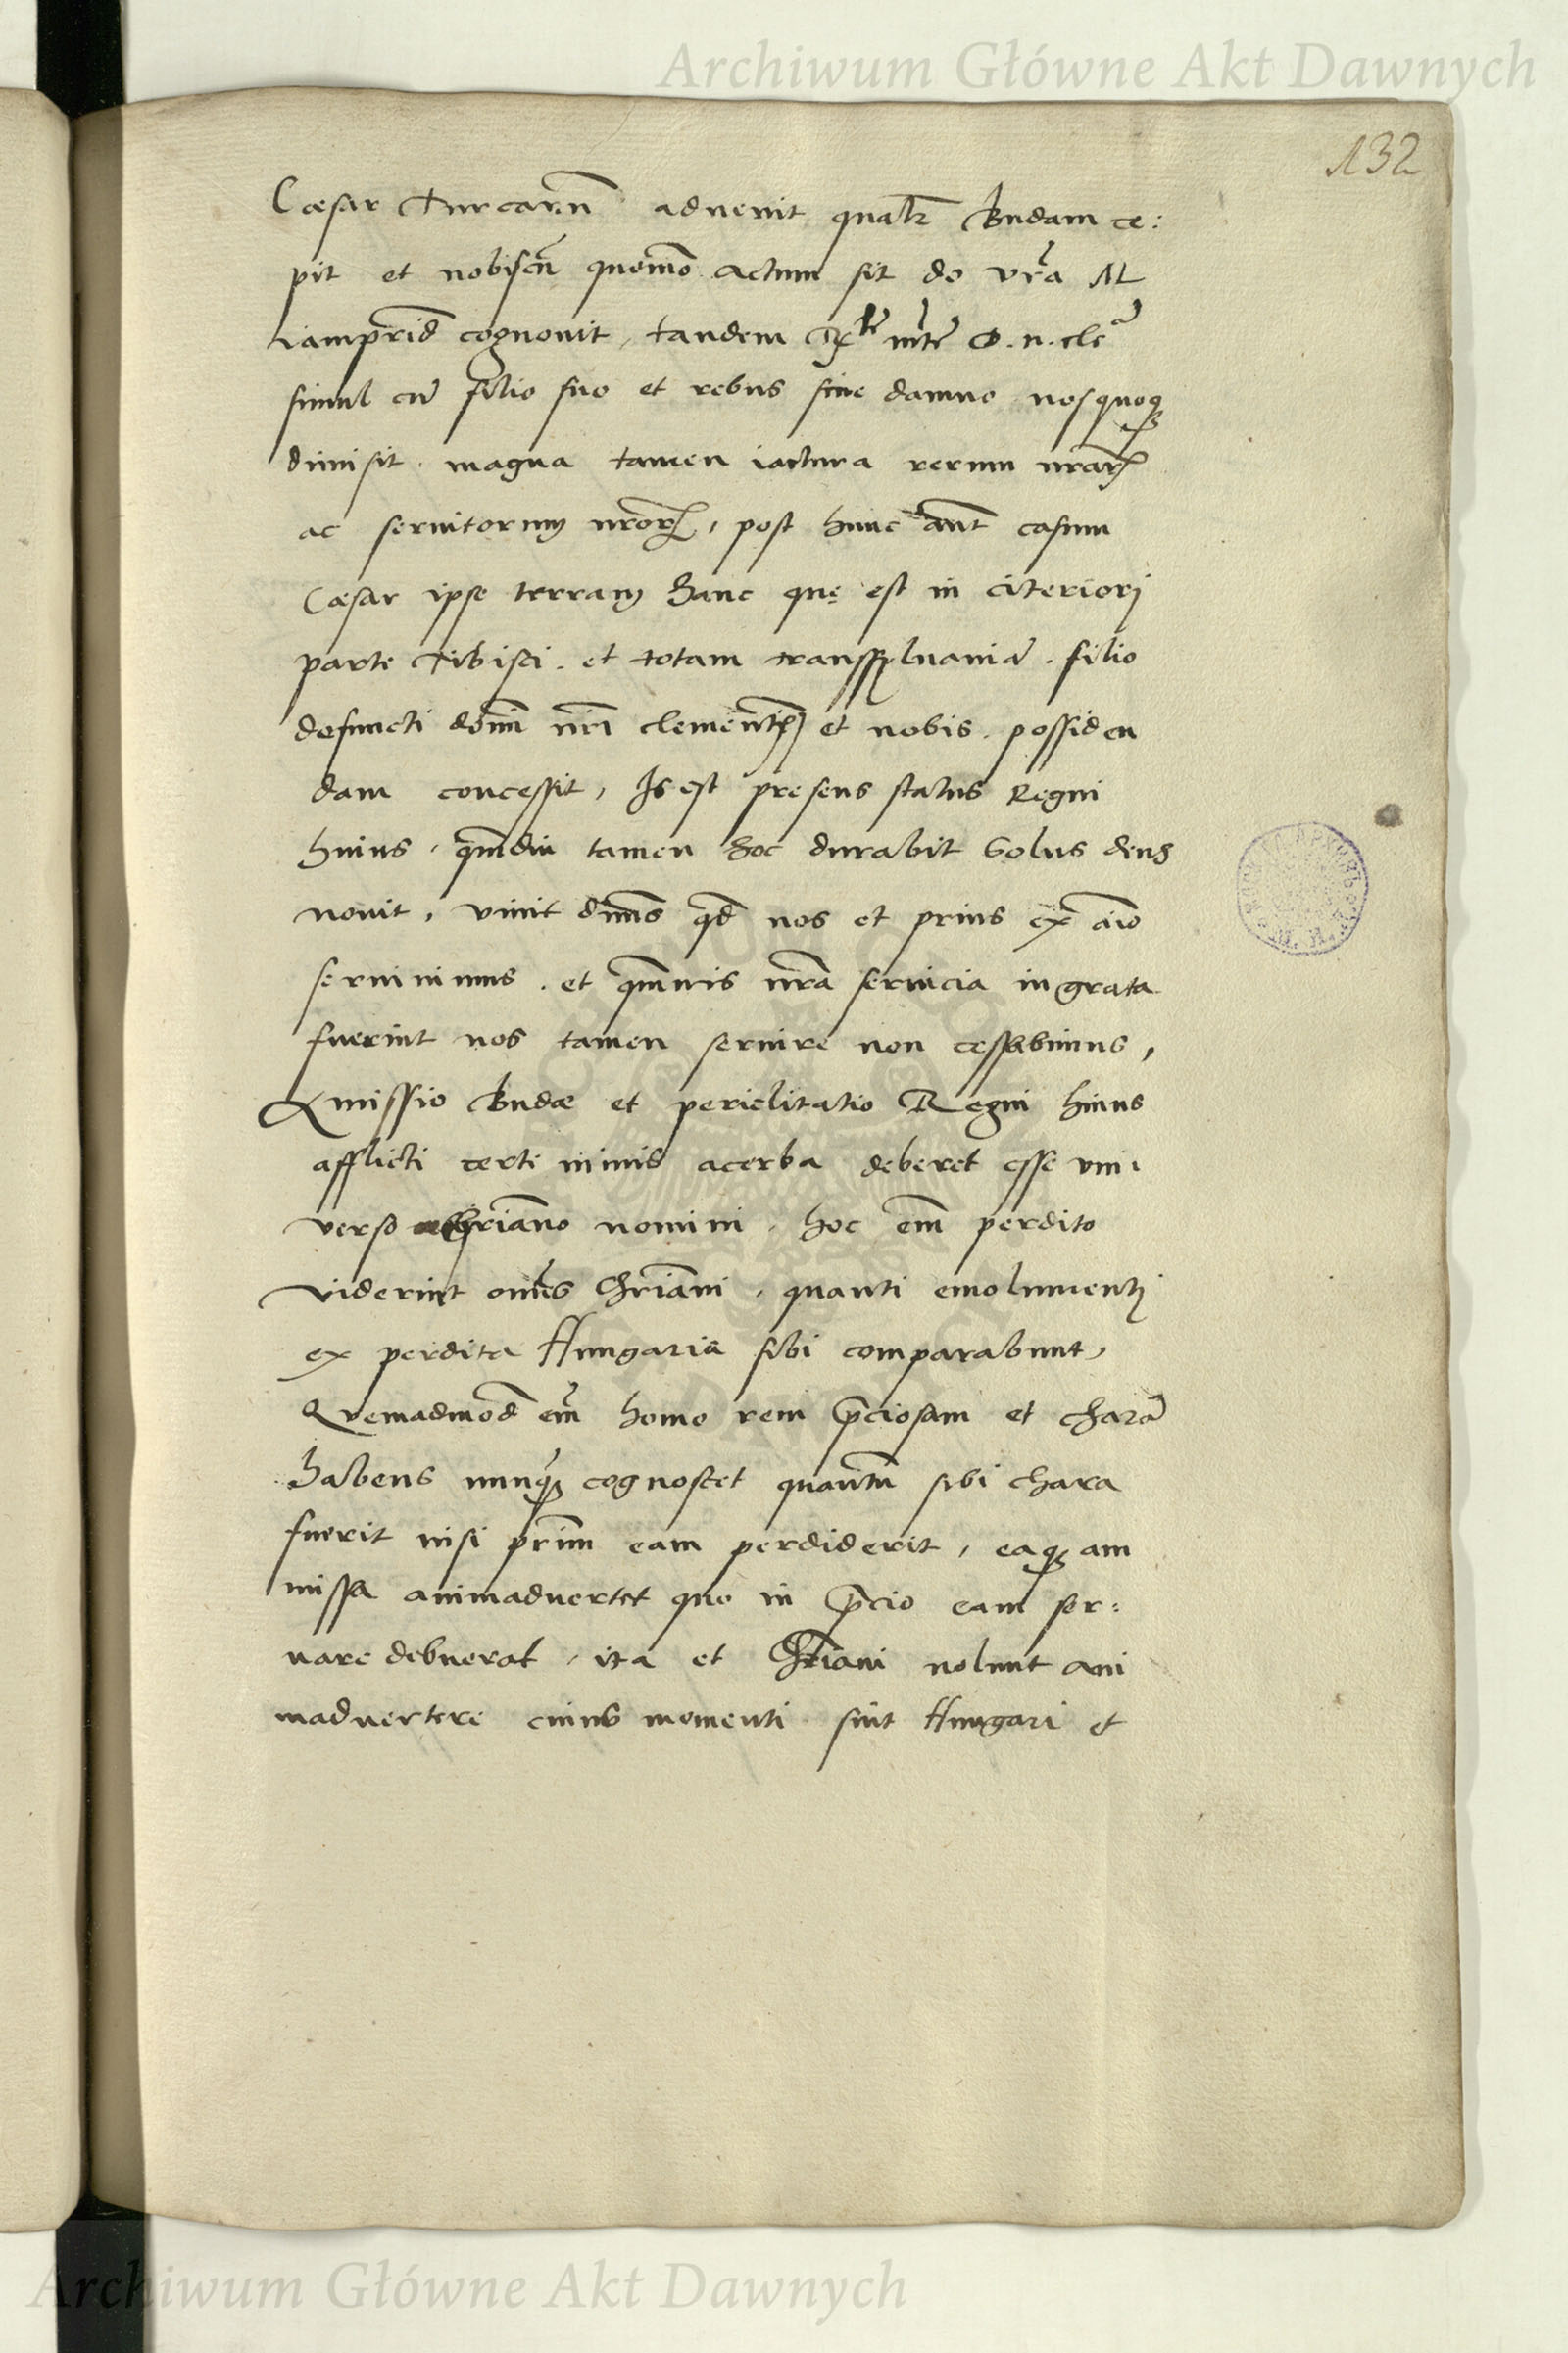 Archiwum Główne Akt Dawnych
132
Cæsar Turcarũ aduenit qualr Budam ce:
pit et nobiscũ quomo actum sit de vra M
iampridẽ cognouit, tandem R mtẽ D. n. clẽ
simul cũ filio suo et rebus sine damno nosquoqȝ
dimisit. magna tamen iactura rerum nrarꝝ
ac seruitorum nrorꝝ, post hunc aũt casum
Cæsar ipse terram hanc quę est in citeriorj
parte Tibisci. et totam transsyluaniã. filio
defuncti domĩ nri clementꝭ et nobis. possiden
dam concessit, Is est presens status Regni
huius, qmdiu tamen hoc durabit Solus deus
nouit, viuit dnus qd nos et prius ex aĩo
seruiuimus. et qmuis nra seruicia ingrata
fuerint nos tamen seruire non cessabimus,
Amissio Budæ et periclitatio Regni huius
afflicti certe nimis acerba deberet esse vni,
verso Chriano nomini, hoc em̃ perdito
viderint omẽs Chriani, quanti emolumentj
ex perdita Hungaria sibi comparabunt,
Quemadmod em̃ homo rem p̃ciosam et charã
habens nunqȝ cognoscet quantũ sibi chara
fuerit nisi primũ eam perdiderit, eaqȝ am
missa animaduertet quo in p̃cio eam ser:
uare debuerat, ita et Chriani nolunt ani
maduertere cuius momenti sint Hungari et
Archiwum Główne Akt Dawnych